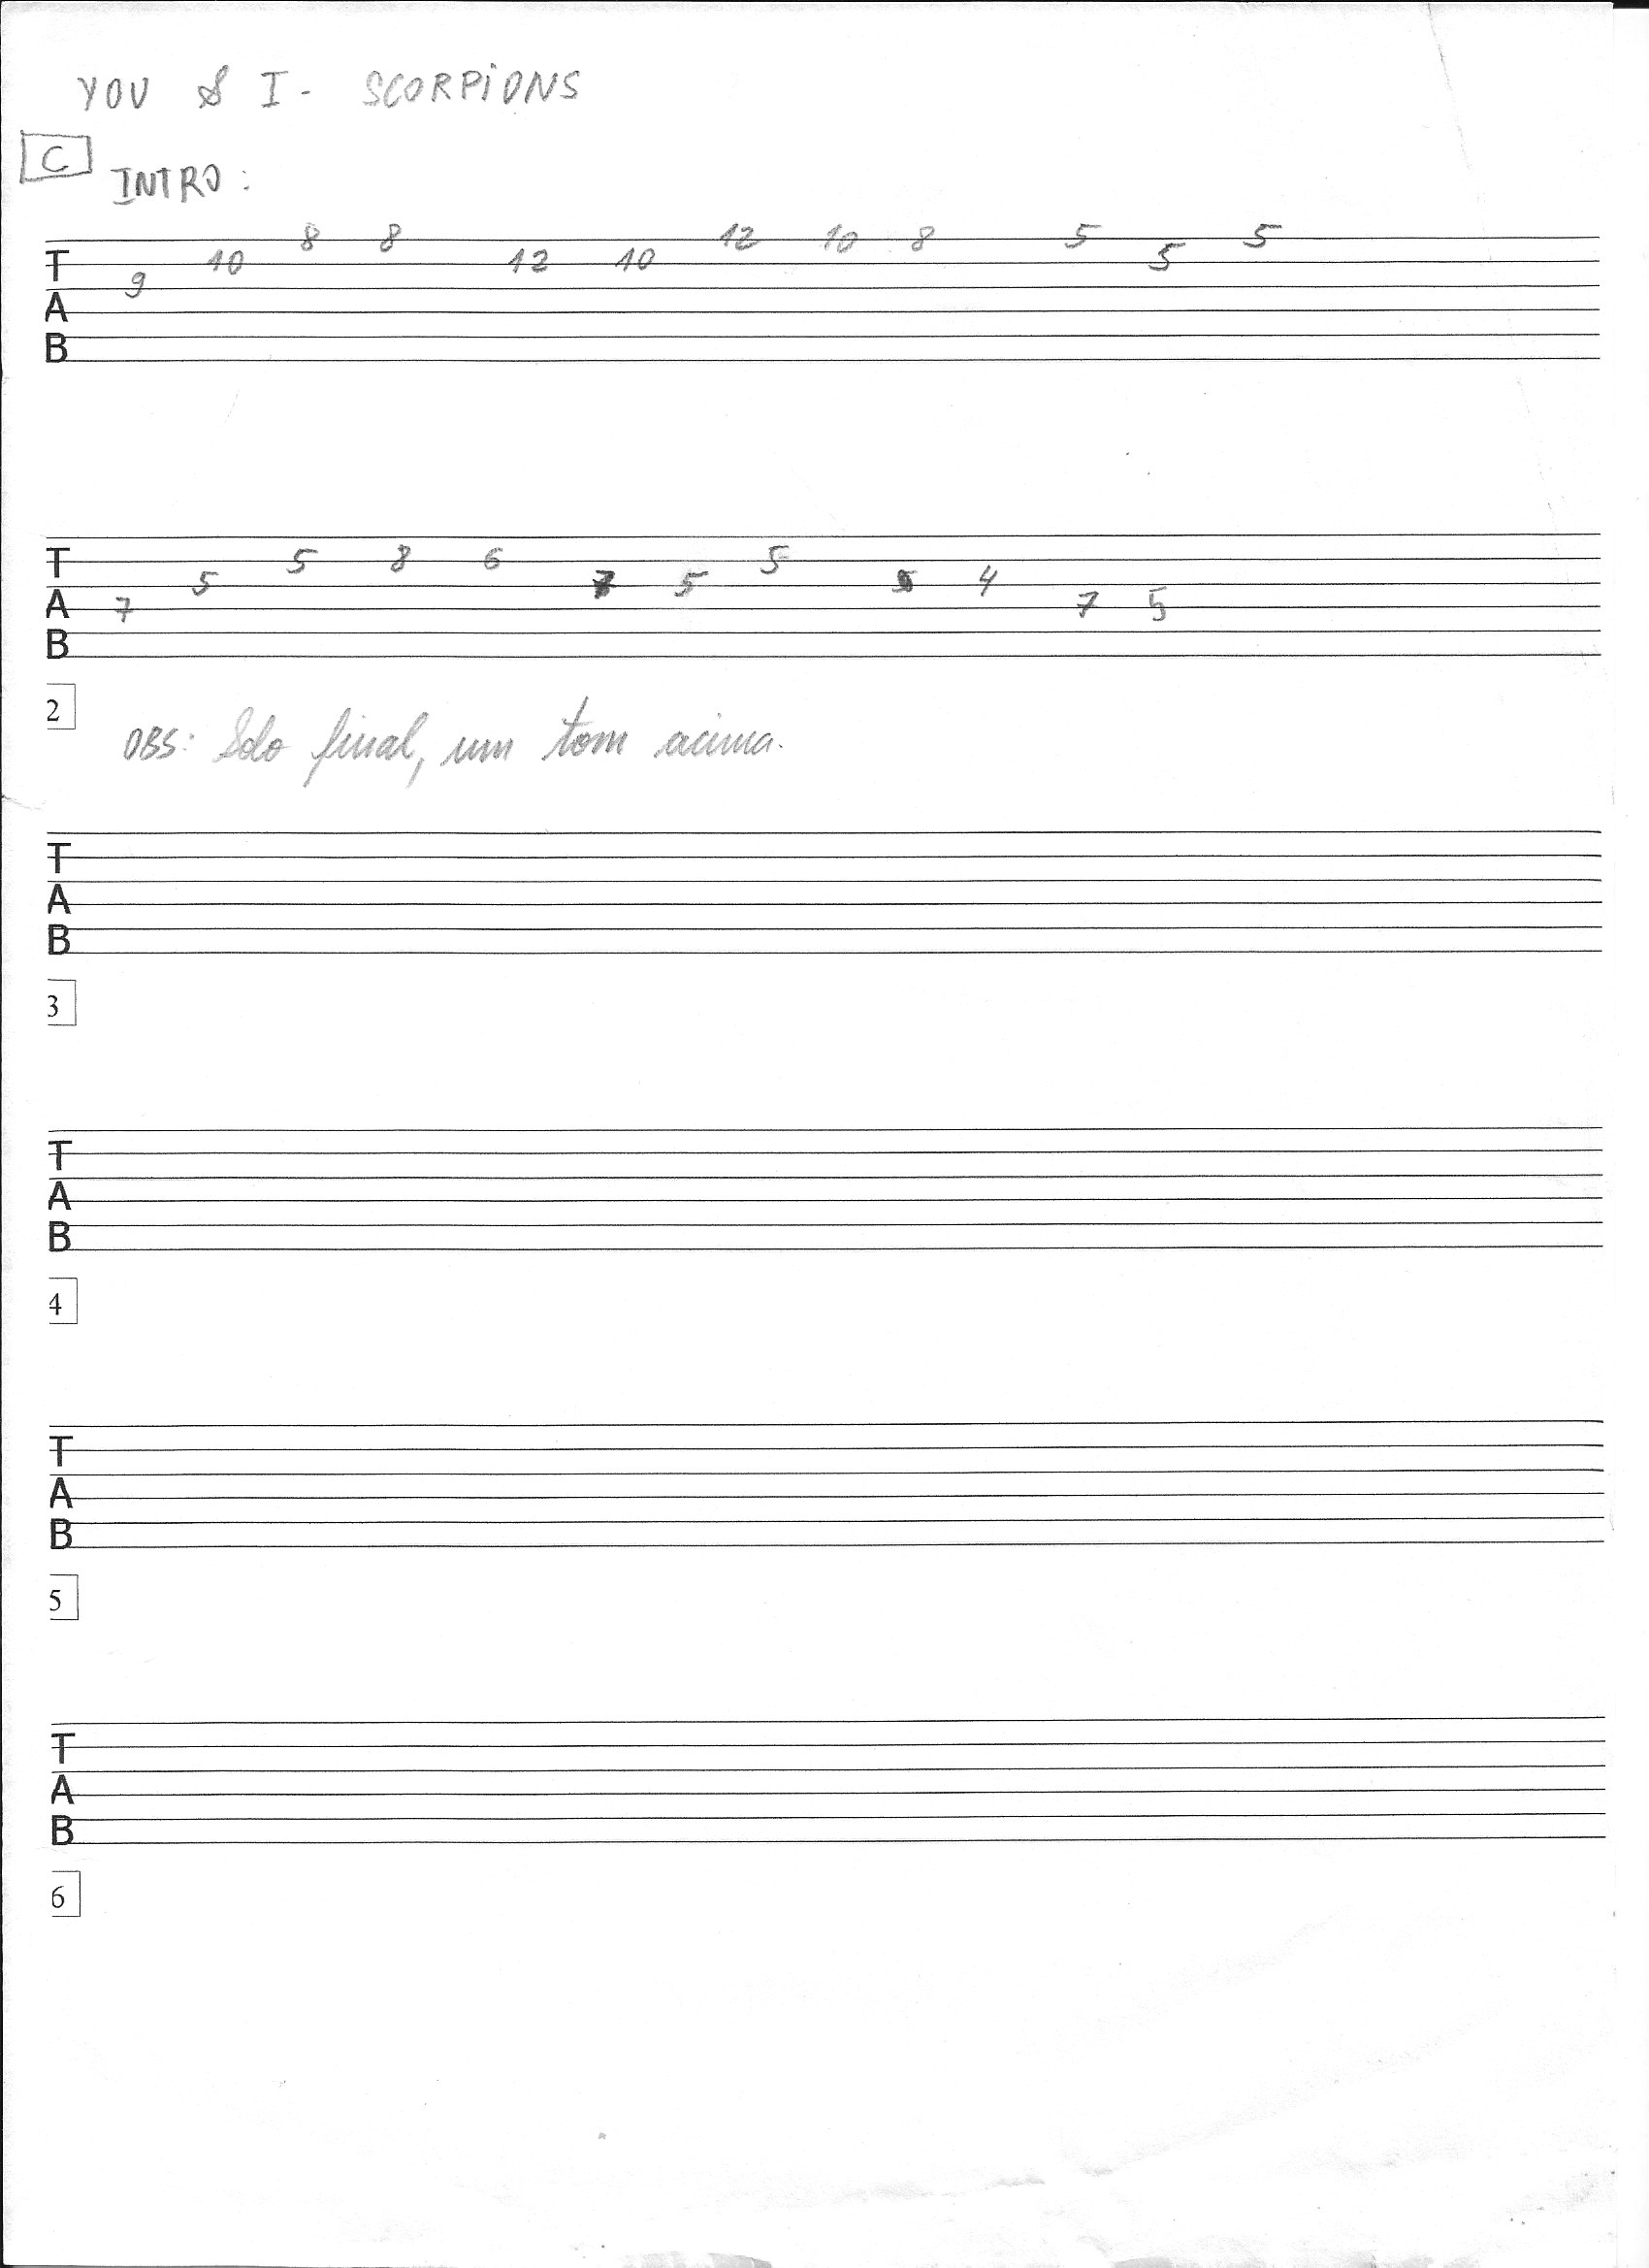 YOU & I - SCORPiONS
C
INTRO:
8 8 12 10 8 5 5
T 10 12 10 5
9
A
B
T 5 8 6 5
5 5 4
A 7 7 5
B
2
OBS: Solo final, um tom acima.
T
A
B
3
T
A
B
4
T
A
B
5
T
A
B
6